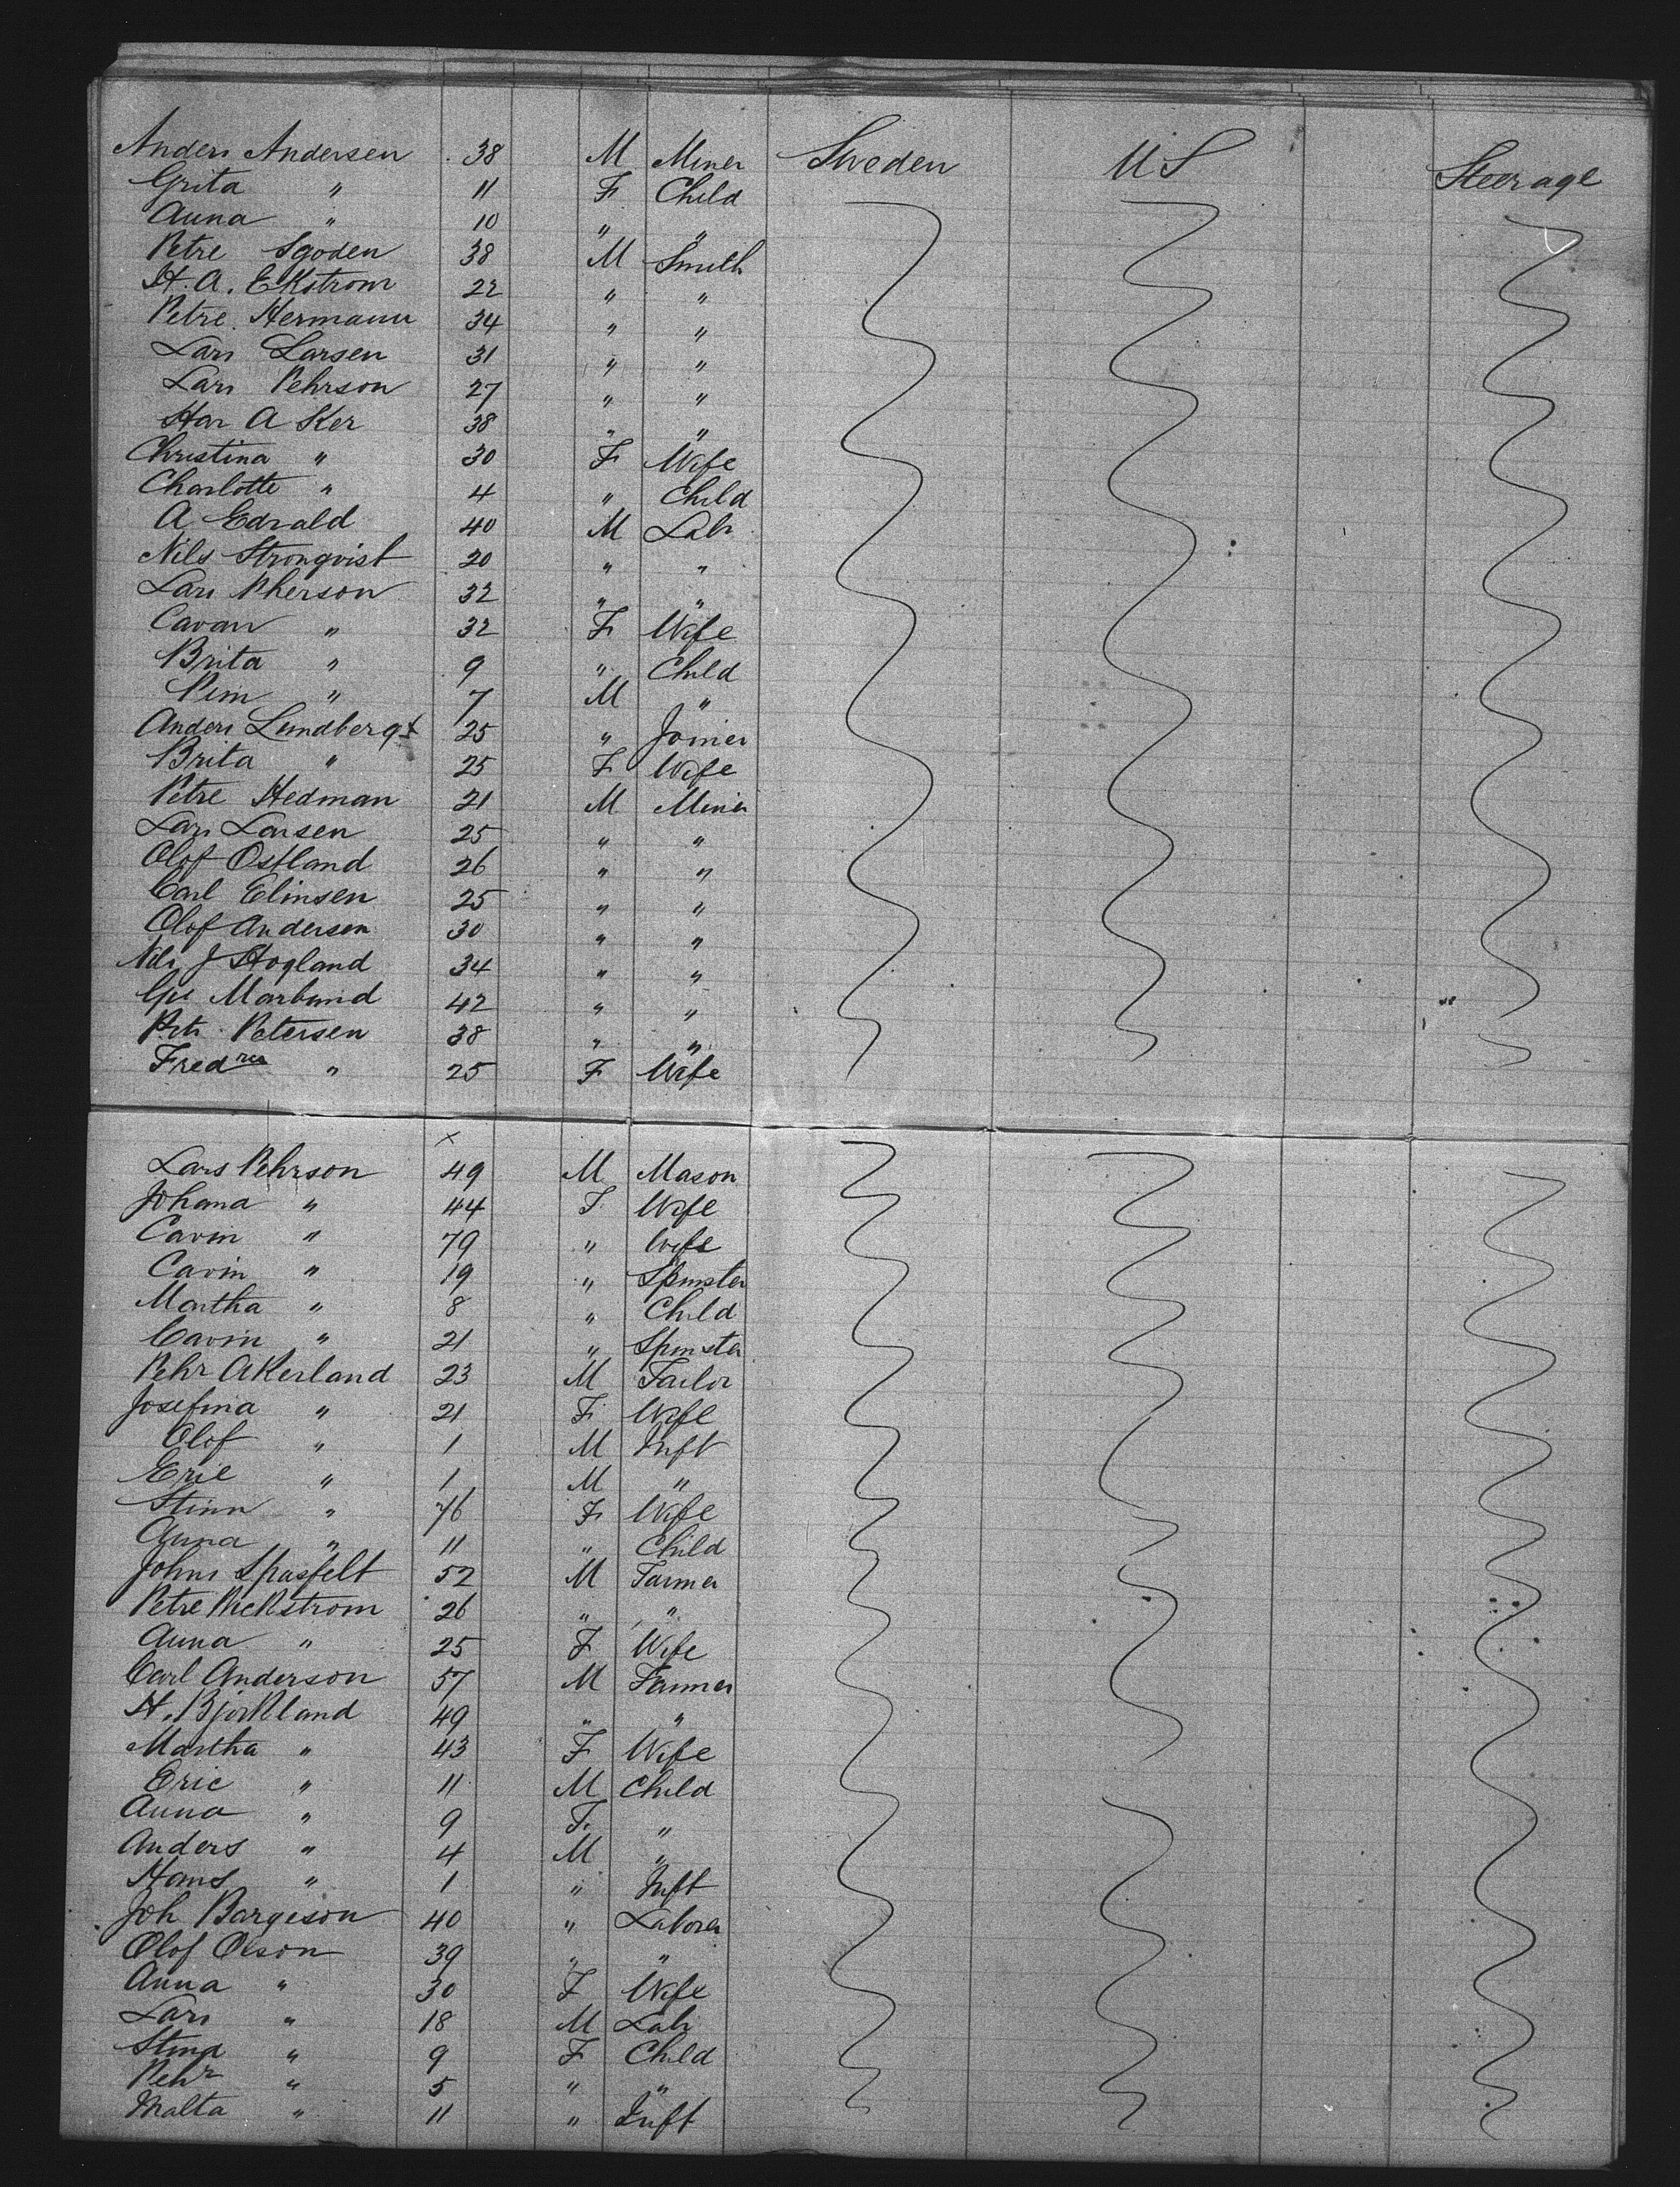 Anders Andersen 38 M Miner Sweden US Steerage
Grita " 11 F Child
Anna " 10 " "
Petre Sgoden 38 M Smith
H. A. Ekstrom 22 " "
Petre Hermann 34 " "
Lars Larsen 31 " "
Lars Pehrson 27 " "
Har A Ker 38 " "
Christina " 30 F Wife
Charlotte " 4 " Child
A Edvald 40 M Labr
Nils Stronqvist 20 " "
Lars Pherson 32 " "
Cavan " 32 F Wife
Brita " 9 " Child
Pim " 7 M "
Anders Lundbergt 25 " Joiner
Brita " 25 F Wife
Petre Hedman 21 M Miner
Lars Larsen 25 " "
Olof Ostland 26 " "
Carl Elinsen 25 " "
Olof Andersen 30 " "
Nils J Hogland 34 " "
Marbund 42 " "
Petr Petersen 38 " "
Fred " 25 F Wife
x
Lars Pehrson 49 M Mason
Johana " 44 F Wife
Carin " 79 " Wife
Carin " 19 " Spinster
Martha " 8 " Child
Carin " 21 " Spinster
Pehr Akerland 23 M Tailor
Josefina " 21 F Wife
Olof " 1 M Inft
Eric " 1 M "
Stinn " 76 F Wife
Anna " 11 " Child
Johns Spasfelt 52 M Farmer
Petre Wickstrom 26 " "
Anna " 25 F Wife
Carl Anderson 57 M Farmer
H. Bjorkland 49 " "
Martha " 43 F Wife
Eric " 11 M Child
Anna " 9 F "
Anders " 4 M "
Hans " 1 " Inft
Joh Bargeson 40 " Laborer
Olof Olson 39 " "
Anna " 30 F Wife
Lars " 18 M Labr
Stina " 9 F Child
Pehr " 5 " "
Malta " 11 " Inft